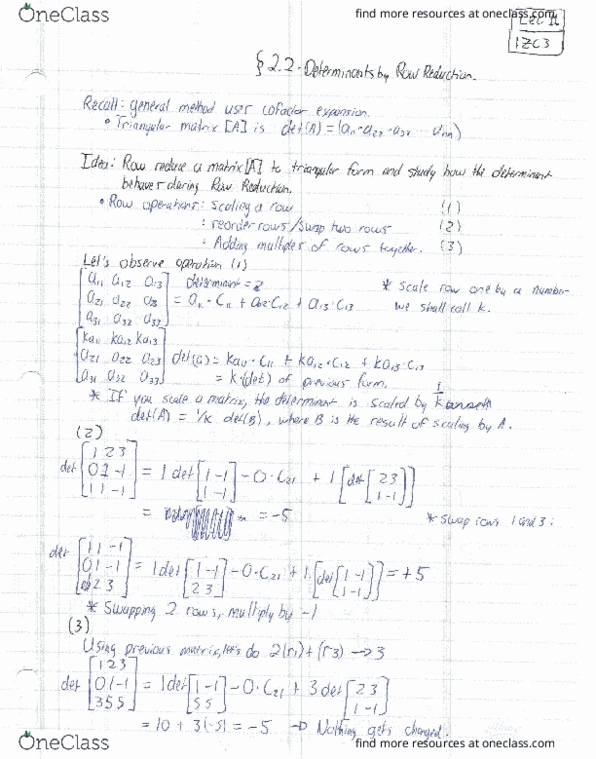 OneClass
find more resources at oneclass.com
Lec 11
1ZC3
§ 2.2 - Determinants by Row Reduction.
Recall: general method uses cofactor expansion.
• Triangular matrix [A] is det(A) = (a11 · a22 · a33 ... ann)
Idea: Row reduce a matrix [A] to triangular form and study how the determinant
behaves during Row Reduction.
• Row operations: scaling a row (1)
: reorder rows/swap two rows (2)
: Adding multiples of rows together. (3)
Let's observe operation (1)
[a11 a12 a13] determinant = * scale row one by a number
[a21 a22 a23] = a11 · C11 + a12 · C12 + a13 · C13 we shall call k.
[a31 a32 a33]
[ka11 ka12 ka13]
[a21 a22 a23] det(a) = ka11 · C11 + ka12 · C12 + ka13 · C13
[a31 a32 a33] = k(det) of previous form.
* If you scale a matrix, the determinant is scaled by 1/k
det(A) = 1/k det(B), where B is the result of scaling by A.
(2)
det [1 2 3]
[0 1 -1] = 1 det [1 -1] - 0 · C21 + 1 [det [2 3]]
[1 1 -1] [1 -1] [1 -1]
= = -5
* Swap rows 1 and 3:
det [1 1 -1]
[0 1 -1] = 1 det [1 -1] - 0 · C21 + 1 [det [1 -1]] = +5
[1 2 3] [2 3] [1 -1]
* Swapping 2 rows, multiply by -1
(3)
Using previous matrix, let's do 2(r1) + (r3) → 3
det [1 2 3]
[0 1 -1] = 1 det [1 -1] - 0 · C21 + 3 det [2 3]
[3 5 5] [5 5] [1 -1]
= 10 + 3(-5) = -5 → Nothing gets changed.
OneClass
find more resources at oneclass.com